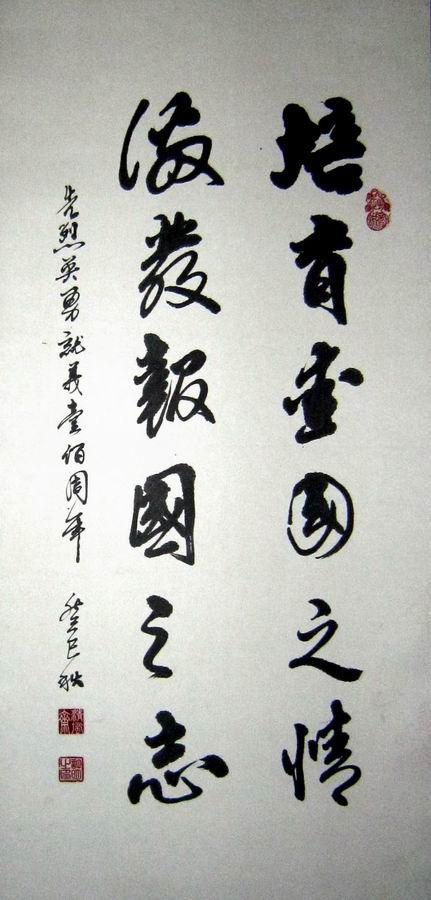 培育爱國之情
激發報國之志
先烈英勇就義壹佰周年 癸巳秋